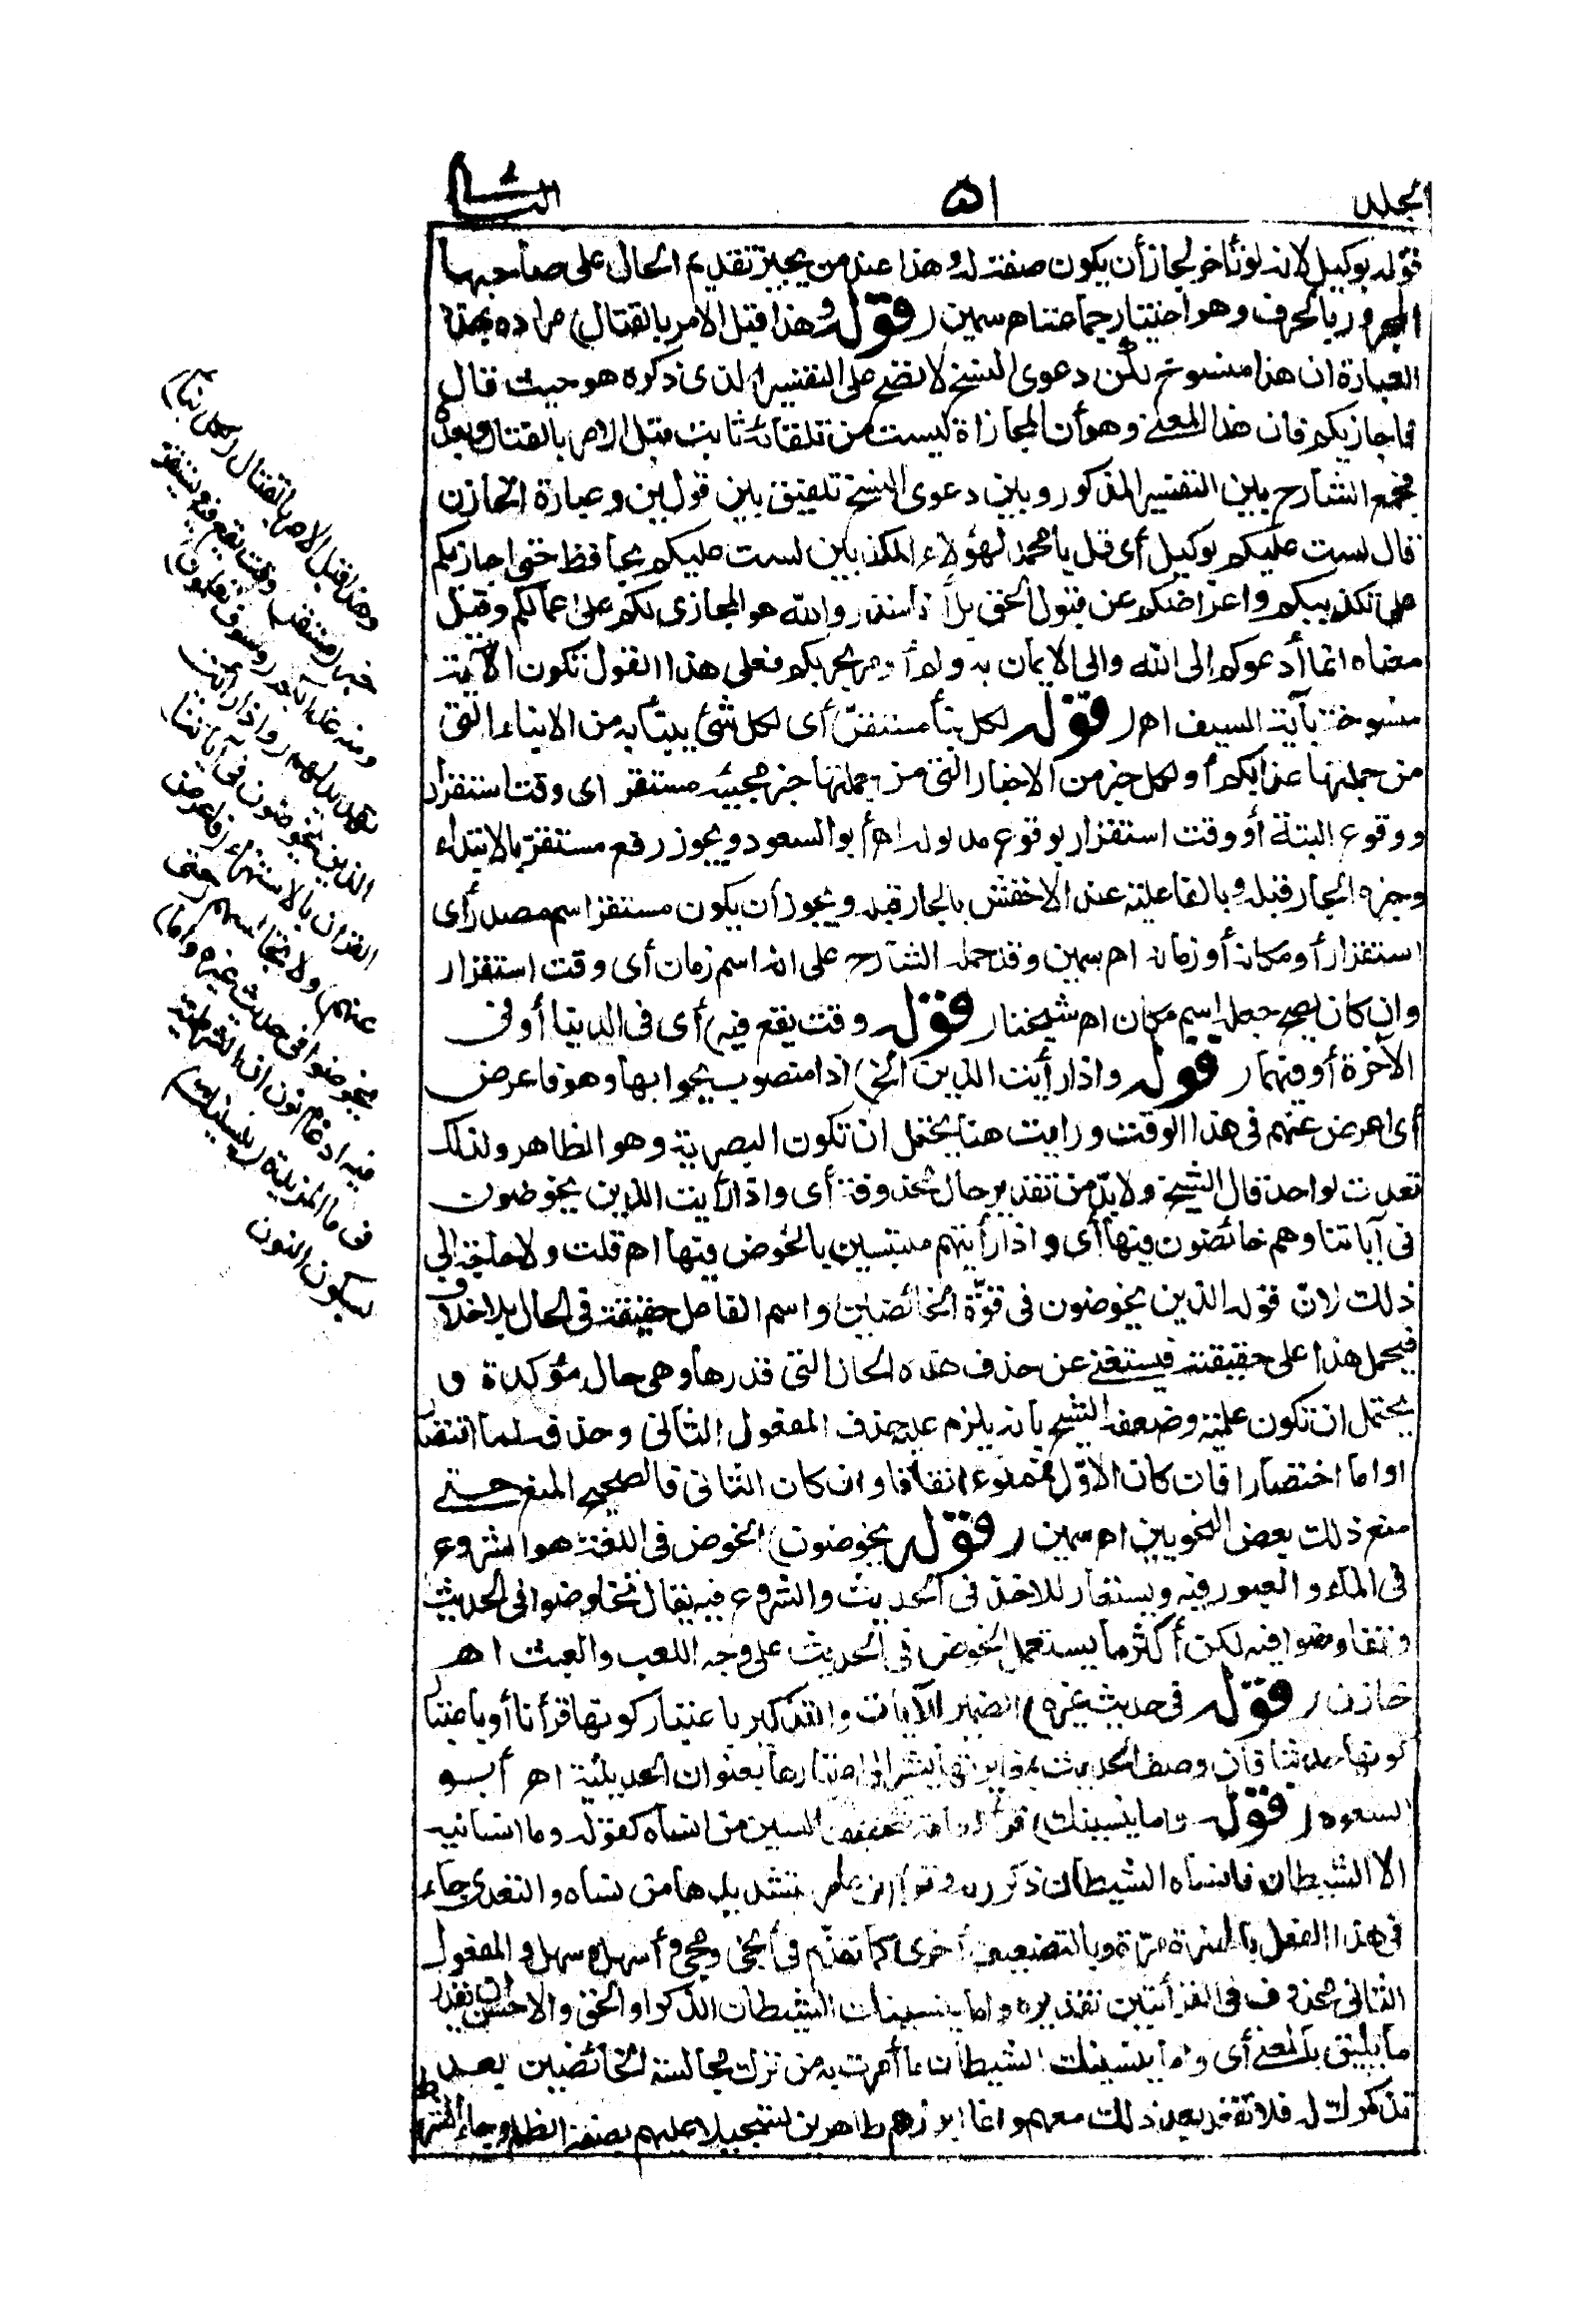 المجلد ٥١ الثانى
قوله بوكيل لانه لو تأخر لجاز أن يكون صفة له وهذا عند من يجيز تقديم الحال على صاحبها
المجرور بالحرف وهو اختيار جماعة اه سمين (قوله وهذا قبل الامر بالقتال) مراده بهذا
العبارة ان هذا منسوخ لكن دعوى النسخ لا تضح على التفسير الذى ذكره هو حيث قال
فاجازيكم فان هذا المعنى وهو أن المجازاة ليست من تلقائه ثابت قبل الامر بالقتال وبعده
فجمع الشارح بين التفسير المذكور وبين دعوى النسخ تلفيق بين قولين وعبارة الخازن
قال لست عليكم بوكيل أى قل يا محمد لهؤلاء المكذبين لست عليكم بحافظ حتى اجازيكم
على تكذيبكم واعراضكم عن قبول الحق بل أنا منذر والله هو المجازى لكم على اعمالكم وقيل
معناه انما أدعوكم الى الله والى الايمان به ولم أومر بحربكم فعلى هذا القول تكون الآية
منسوخة بآية السيف اه (قوله لكل نبأ مستقر) أى لكل شئ ينبأ به من الانباء التى
من جملتها عذابكم أو لكل خبر من الاخبار التى من جملتها خبر مجيئه مستقر اى وقت استقرار
ووقوع البتة أو وقت استقرار بوقوع مدلوله اه أبو السعود ويجوز رفع مستقر بالابتداء
وخبره الجار قبله وبالفاعلية عند الاخفش بالجار قبله ويجوز أن يكون مستقر اسم مصدر أى
استقرار أو مكانه أو زمانه اه سمين وقد حمله الشارح على انه اسم زمان أى وقت استقرار
وان كان يصح جعله اسم مكان اه شيخنا (قوله وقت يقع فيه) أى فى الدنيا أو فى
الآخرة أو فيهما (قوله واذا رأيت الذين الخ) اذا منصوب بجوابها وهو فاعرض
أى اعرض عنهم فى هذا الوقت ورايت هنا يحتمل ان تكون البصرية وهو الظاهر ولذلك
تعدت لواحد قال الشيخ ولا بدّ من تقدير حال محذوفة أى واذا رأيت الذين يخوضون
فى آياتنا وهم خائضون فيها أى واذا رأيتهم ملتبسين بالخوض فيها اه قلت ولا حاجة الى
ذلك لانّ قوله الذين يخوضون فى قوّة الخائضين واسم الفاعل حقيقة فى الحال بلا خلاف
فيحمل هذا على حقيقته فيستغنى عن حذف هذه الحال التى قدرها وهى حال مؤكدة و
يحتمل ان تكون علمية وضعفه الشيخ بانه يلزم عليه حذف المفعول الثانى وحذفه اما اقتصارا
او اما اختصارا فان كان الاوّل فممنوع اتفاقا وان كان الثانى فالصحيح المنع حتى
منع ذلك بعض النحويين اه سمين (قوله يخوضون) الخوض فى اللغة هو الشروع
فى الماء والعبور فيه ويستعار للاخذ فى الحديث والشروع فيه يقال تخاوضوا فى الحديث
وتفاوضوا فيه لكن أكثر ما يستعمل الخوض فى الحديث على وجه اللعب والعبث اه
خازن (قوله فى حديث غيره) الضمير للآيات والتذكير باعتبار كونها قرأنا أو باعتبار
كونها حديثا فان وصف الحديث بمغايرتها يشير الى اعتبارها بعنوان الحديثية اه أبو
السعود (قوله واما ينسينك) قرأ العامة بتخفيف السين من انساه كقوله وما انسانيه
الا الشيطان فانساه الشيطان ذكر ربه وقرأ ابن عامر بتشديدها من نساه والتعدى جاء
فى هذا الفعل بالهمزة مرّة وبالتضعيف أخرى كما تقدّم فى أنجى ونجى وأمهل ومهل والمفعول
الثانى محذوف فى القرأتين تقديره واما ينسينك الشيطان الذكر او الحق والاحسن ان تقدر
ما يليق بالمعنى أى واما ينسينك الشيطان ما أمرت به من ترك مجالسة الخائضين بعد
تذكرك له فلا تقعد بعد ذلك معهم وانما ابرزهم ظاهرين تسجيلا عليهم بصفة الظلم وجاء الشرط
وهذا قبل الامر بالقتال (لكل نبأ)
خبر (مستقر) وقت يقع فيه ويستقر
ومنه عذابكم (وسوف تعلمون)
تهديد لهم (واذا رأيت
الذين يخوضون فى آياتنا)
القرآن بالاستهزاء (فاعرض
عنهم) ولا تجالسهم (حتى
يخوضوا فى حديث غيره واما)
فيه ادغام نون ان الشرطية
فى ما المزيدة (ينسينك)
بسكون النون